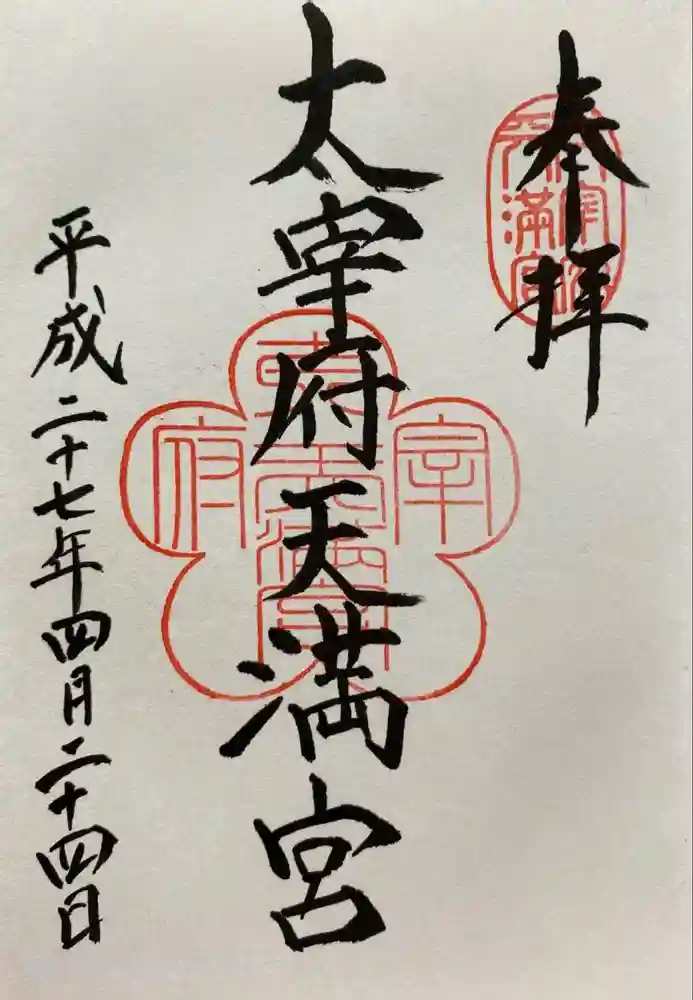 奉拝
太宰府天満宮
平成二十七年四月二十四日